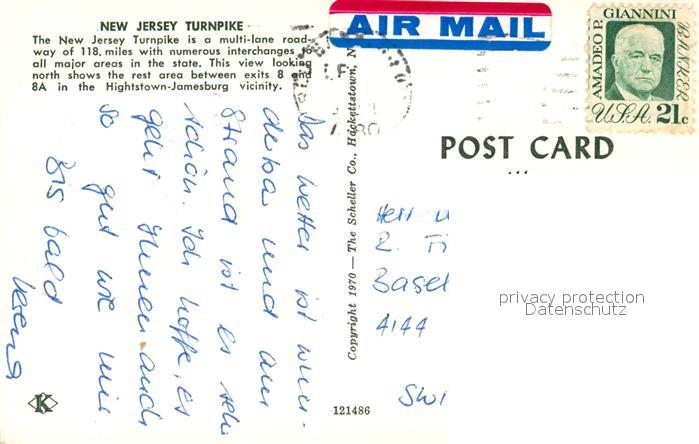 NEW JERSEY TURNPIKE
The New Jersey Turnpike is a multi-lane road-
way of 118 miles with numerous interchanges to
all major areas in the state. This view looking
north shows the rest area between exits 8 and
8A in the Hightstown-Jamesburg vicinity.
Das Wetter ist wun-
derbar und am
Strand ist es sehr
schön. Ich hoffe, es
geht Ihnen auch
so gut wie mir
Bis bald
K
Copyright 1970 — The Scheller Co., Hackettstown, N
121486
AIR MAIL
AMADEO P. GIANNINI
BANKER
USA 21c
POST CARD
Herr u
Basel
4144
SWI
privacy protection
Datenschutz